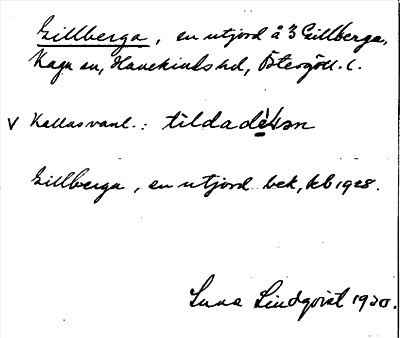 Gillberga, en utjord å 3 Gillberga,
Kaga sn, Hanekinds hd, Östergötl. l.
v Kallas vanl.: tildadèlən
Gillberga, en utjord bek, kb 1928.
Suna Lindqvist 1930.